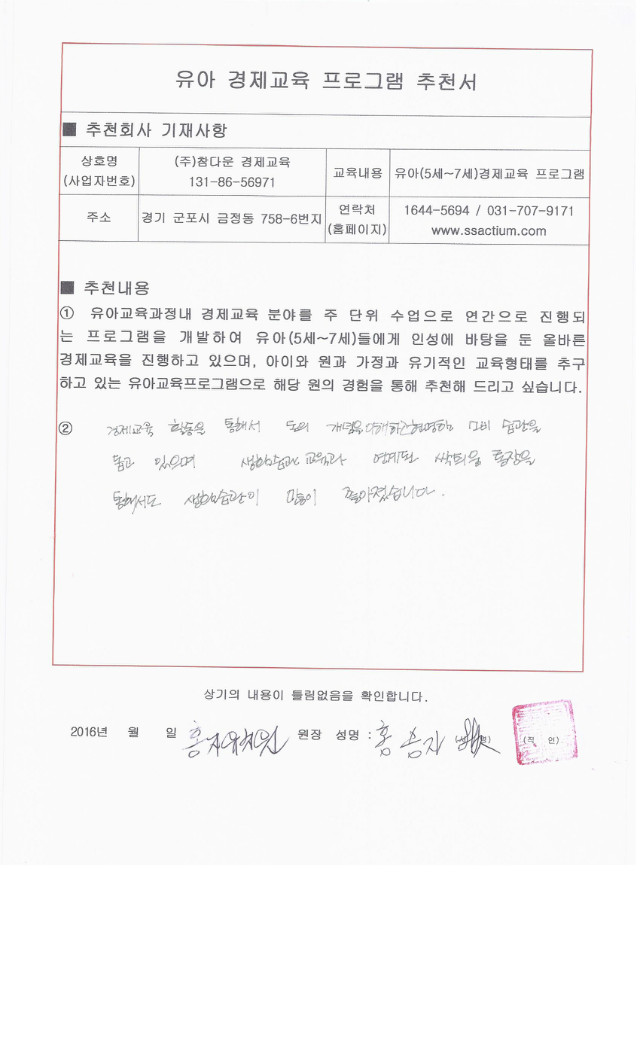 유아 경제교육 프로그램 추천서
■ 추천회사 기재사항
상호명
(사업자번호)
(주)참다운 경제교육
131-86-56971
교육내용
유아(5세~7세)경제교육 프로그램
주소
경기 군포시 금정동 758-6번지
연락처
(홈페이지)
1644-5694 / 031-707-9171
www.ssactium.com
■ 추천내용
① 유아교육과정내 경제교육 분야를 주 단위 수업으로 연간으로 진행되
는 프로그램을 개발하여 유아(5세~7세)들에게 인성에 바탕을 둔 올바른
경제교육을 진행하고 있으며, 아이와 원과 가정과 유기적인 교육형태를 추구
하고 있는 유아교육프로그램으로 해당 원의 경험을 통해 추천해 드리고 싶습니다.
② 경제교육 활동을 통해서 돈의 개념을 소비 습관을
돕고 있으며 생활습관 교육과 연계된 싹틔움 통장을
통해서도 생활습관이 많이 좋아졌습니다.
상기의 내용이 틀림없음을 확인합니다.
2016년 월 일 유치원 원장 성명 : 홍 (직 인)